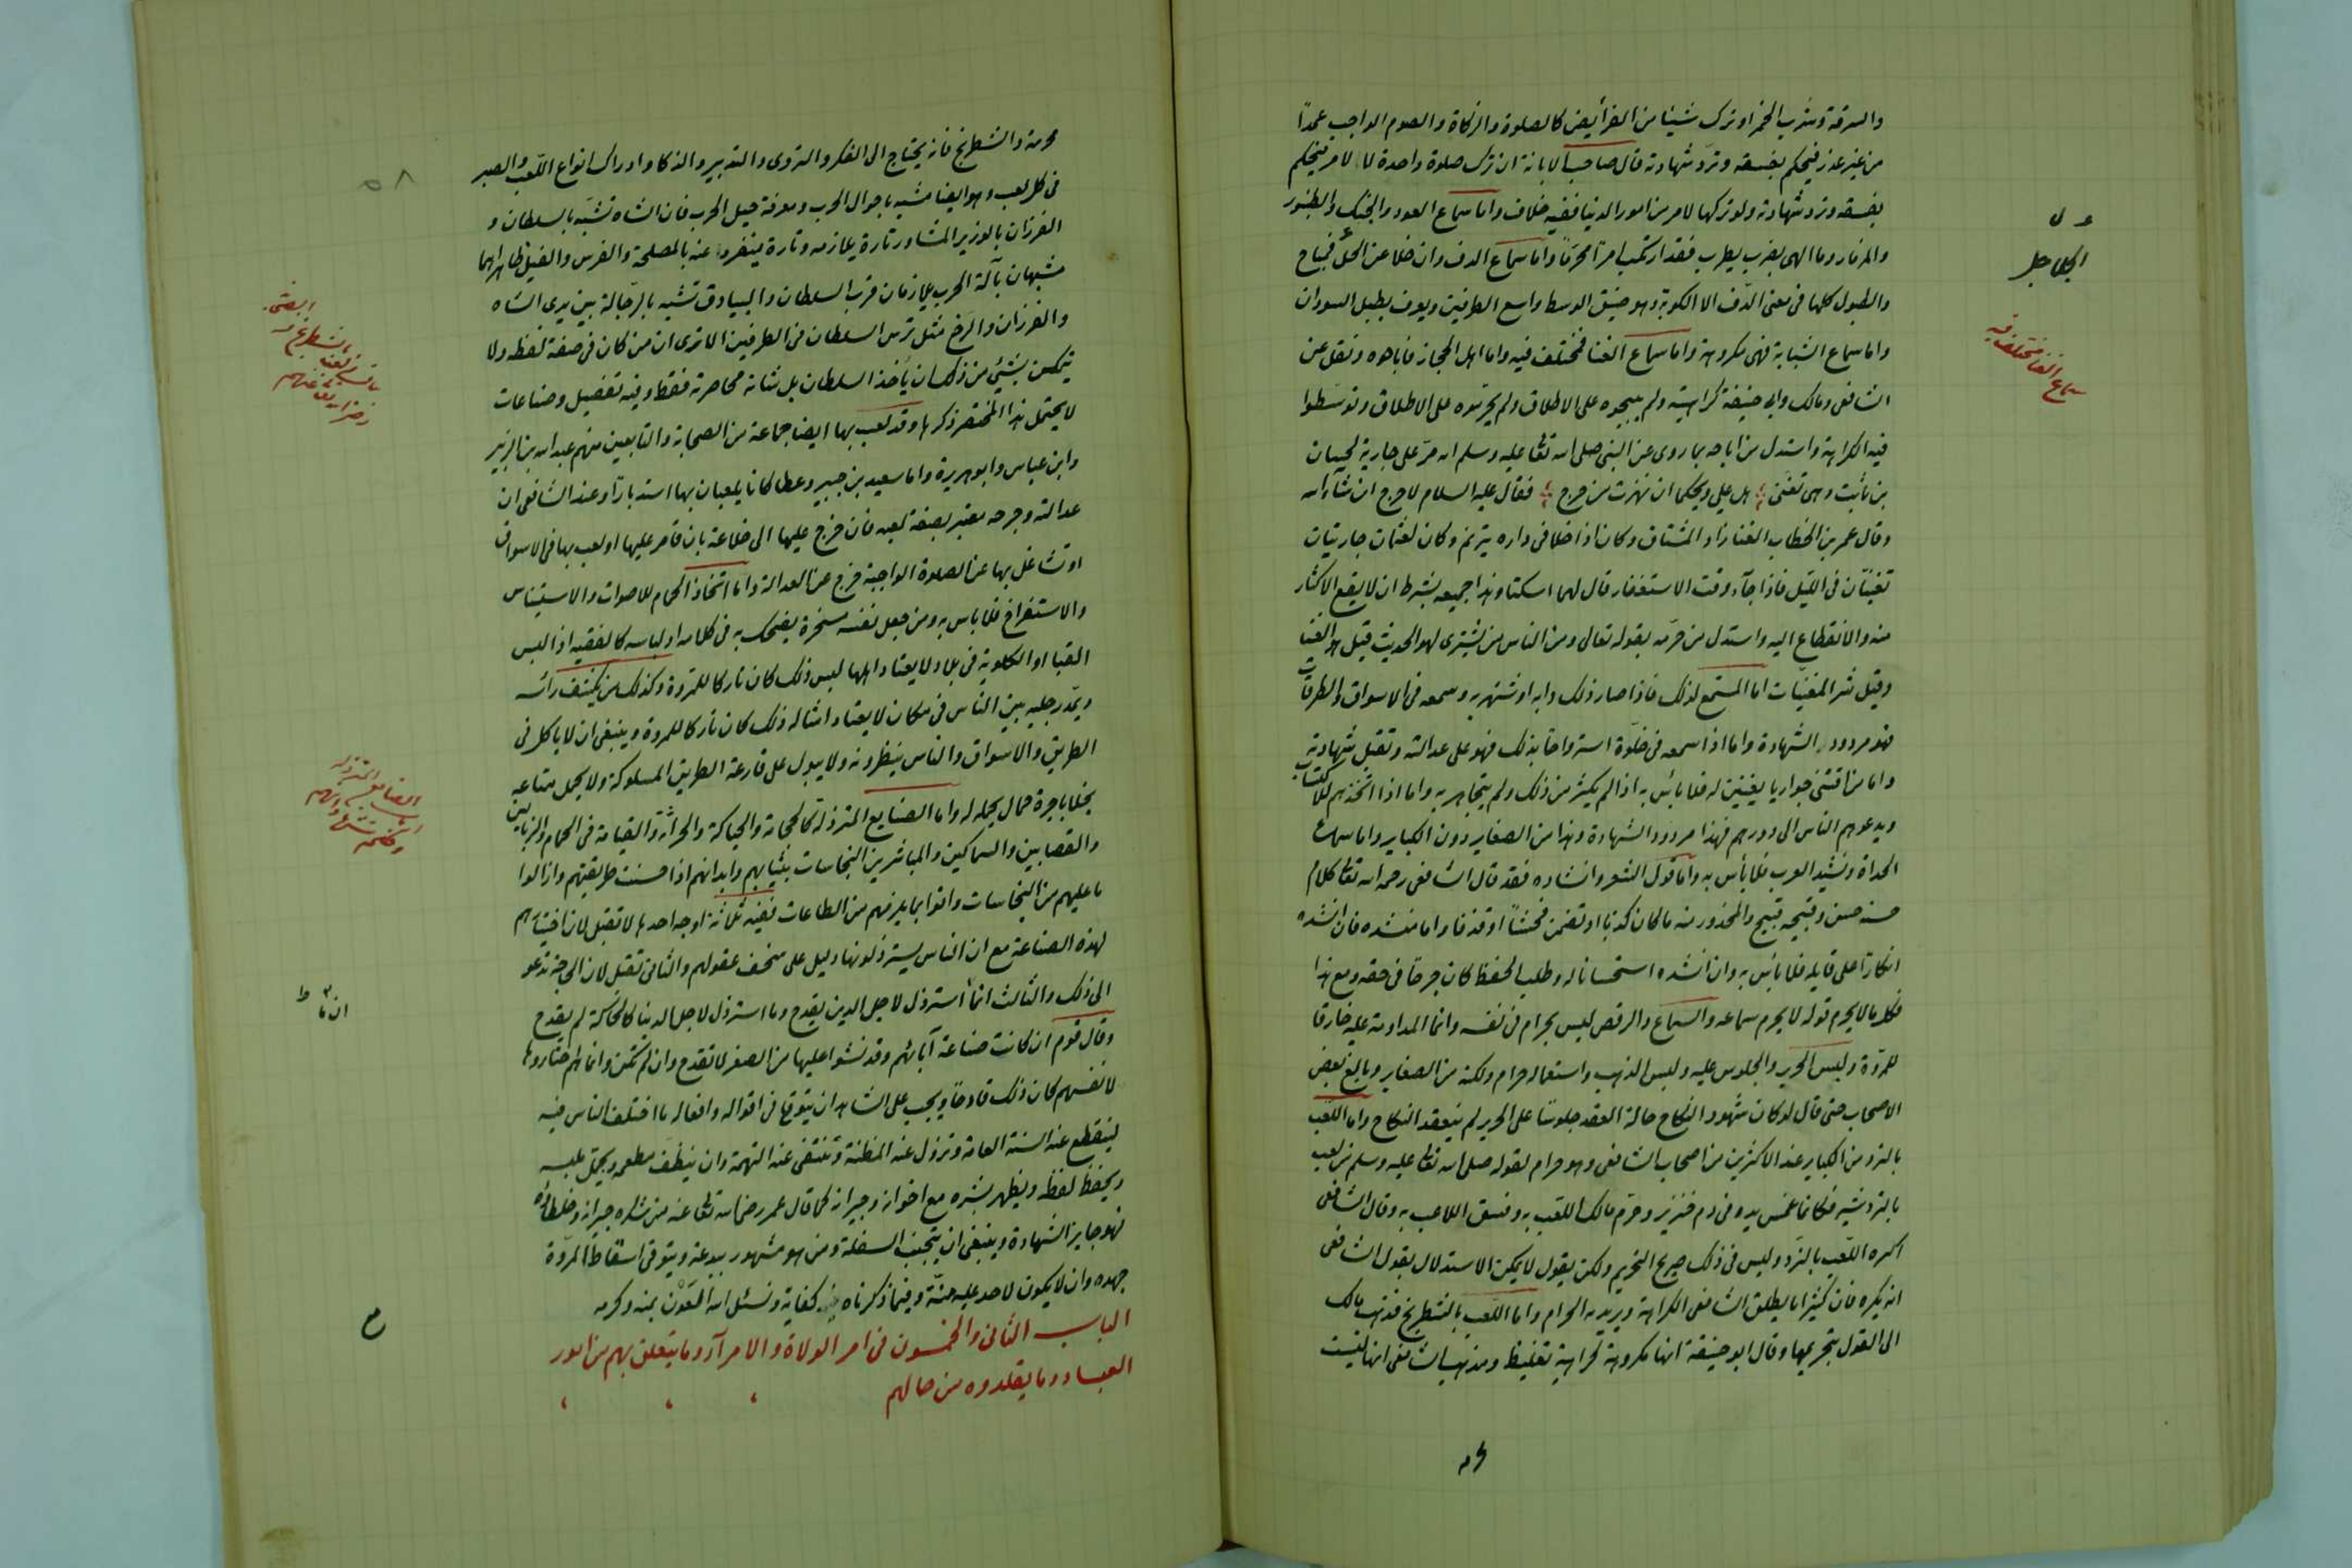 والسرقة وشرب الخمر او ترك شيئا من الفرأيض كالصلوة والزكاة والصوم الواجب عمدًا
من غير عذر فيحكم بفسقه وتردّ شهادته قال صاحب الابانة ان ترك صلوة واحدة لا لامر فيحكم
بفسقه وترد شهادته ولو تركها لامر من امور الدنيا ففيه خلاف واما سماع العود والجنك والطنبور
والمزمار وما الهى بضرب يطرب فقد ارتكب امرًا محرّمًا واما سماع الدف وان خلا عن الجلجل فمباح
والطبول كلها فى معنى الدّف الا الكوبة وهو ضيق الوسط واسع الطرفين ويعرف بطبل السودان
واما سماع الشبابة فهى مكروهة واما سماع الغنا فمختلف فيه واما اهل الحجاز فاباحوه ونقل عن
الشافعى ومالك وابى حنيفة كراهيته ولم يبيحوه على الاطلاق ولم يحرّموه على الاطلاق وتوسّطوا
فيه الكراهة واستدل من اباحه بما روى عن النبى صلى الله تعا عليه وسلم انه مرّ على جارية لحسان
بن ثابت وهى تغنى هل على ويحكما ان لهوت من حرج فقال عليه السلام لا حرج ان شاء الله
وقال عمر بن الخطاب الغنا زاد المشتاق وكان اذا خلا فى داره يترنم وكان لعثمان جاريتان
تغنيّان فى الليل فاذا جآء وقت الاستغفار قال لهما اسكتا وهذا جميعه بشرط ان لا يقع الاكثار
منه والانقطاع اليه واستدل من حرّمه بقوله تعالى ومن الناس من يشترى لهو الحديث قيل هو الغنا
وقيل شر المغنيات اما المستمع لذلك فاذا صار ذلك دابه او شتهر به وسمعه فى الاسواق والطرقات
فهو مردود الشهادة واما اذا سمعه فى خلوة استرواحا بذلك فهو على عدالته وتقبل شهادته
واما من اقتنى جواريا يغنين له فلا بأس به اذا لم يكثر من ذلك ولم يتجاهر به واما اذا اتخذهم للاكتساب
ويدعوهم الناس الى دورهم فهذا مردود الشهادة وهذا من الصغاير دون الكباير واما سماع
الحداة ونشيد العرب فلا بأس به واما قول الشعر وانشاده فقد قال الشافعى رحمه الله تعا كلام
حسنه حسن وقبيحه قبيح والمحذور منه ما كان كذبا او تضمن فحشًا او قذفا واما منشده فان انشده
انكارًا على قايله فلا بأس به وان انشده استحسانا له وطلب الحفظ كان جرحًا فى حقه ومع هذا
فكل ما لا يحرم قوله لا يحرم سماعه والسماع والرقص ليس بحرام فى نفسه وانما المداومة عليه خارقا
للمرّوة ولبس الحرير والجلوس عليه ولبس الذهب واستعماله حرام ولكنه من الصغاير وبالغ بعض
الاصحاب حتى قال لو كان شهود النكاح حالة العقد جلوسًا على الحرير لم ينعقد النكاح واما اللعب
بالنرد من الكباير عند الاكثرين من اصحاب الشافعى وهو حرام لقوله صلى الله تعا عليه وسلم من لعب
بالنردشير فكانما غمس يده فى دم خنزير وحرّم مالك اللعب به وفسق اللاعب به وقال الشافعى
اكره اللعب بالنرد وليس فى ذلك صريح التحريم ولكن يقول لا يمكن الاستدلال بقول الشافعى
انه يكره فان كثيرًا ما يطلق الشافعى الكراهة ويريد به الحرام واما اللعب بالشطرنج فذهب مالك
الى القول بتحريمها وقال ابو حنيفة انها مكروهة كراهية تغليظ ومذهب الشافعى انها ليست
الجلاجل
سماع الغنا مختلف فيه
٥٨
محرمة والشطرنج فانه يحتاج الى الفكر والتروى والتدبير والذكا وادراك انواع اللعب والصبر
فى كل لعب وهو ايضا مشبه باحوال الحرب ومعرفة حيل الحرب فان الشاه تشبّه بالسلطان و
الفرزان بالوزير المشاور تارة يلازمه وتارة ينفرد عنه بالمصلحة والفرس والفيل ظاهر انهما
مشبهان بآلة الحرب يلازمان قرب السلطان والبيادق تشبه بالرّجالة بين يدى الشاه
والفرزان والرخ مثل ترس السلطان فى الطرفين الا ترى ان من كان فى صفة لفظه ولا
يتمكن بشئ من ذلك ان يأخذ السلطان بل شانه محاصرته فقط وفيه تفصيل وصناعات
لا يحتمل هذا المختصر ذكرها وقد لعب بها ايضا جماعة من الصحابة والتابعين منهم عبد الله بن الزبير
وابن عباس وابو هريرة واما سعيد بن جبير وعطا كانا يلعبان بها استدبارًا وعند الشافعى ان
عدالته وجرحه معتبر بصفة لعبه فان خرج عليها الى خلاعة بان قامر عليها او لعب بها فى الاسواق
او تشاغل بها عن الصلوة الواجبة خرج عن العدالة واما اتخاذ الحمام للاصوات والاستيناس
والاستفراخ فلا باس به ومن جعل نفسه مسخرة يضحك به فى كلامه او لباسه كالفقيه اذا لبس
القبا او الكلوية فى بلاد لا يعتاد اهلها لبس ذلك كان تاركا للمروة وكذلك من يكشف رأسه
ويمدّ رجليه بين الناس فى مكان لا يعتاد امثاله ذلك كان تاركا للمروة وينبغى ان لا ياكل فى
الطريق والاسواق والناس ينظرونه ولا يبول على قارعة الطريق المسلوكة ولا يحمل متاعه
بخلا باجرة حمال يحمله له واما الصنايع المترذلة كالحجامة والحياكة والحراثة والقيامة فى الحمام والزبالين
والقصابين والسماكين والمباشرين النجاسات بثيابهم وابدانهم اذا حسنت طريقتهم وازالوا
ما عليهم من النجاسات واتوا بما يلزمهم من الطاعات ففيه ثلاثة اوجه احدها لا تقبل لان اختيارهم
لهذه الصناعة مع ان الناس يسترذلونها دليل على سخف عقولهم والثانى تقبل لان الحاجة تدعو
الى ذلك والثالث انما استرذل لاجل الدين يقدح وما استرذل لاجل الدنيا كالحاكة لم يقدح
وقال قوم ان كانت صناعة آبائهم وقد نشوا عليها من الصغر لا تقدح وان لم تكن وانما هم اختاروها
لانفسهم كان ذلك قادحًا ويجب على الشاهد ان يتوقا فى اقواله وافعاله ما اختلف الناس فيه
لينقطع عنه السنة العامة وتزول عنه المظنة وتنتفى عنه التهمة وان ينظف مطعمه ويجمل ملبسه
ويحفظ لفظه ويظهر بشره مع اخوانه وجيرانه كما قال عمر رضى الله تعا عنه من شكره جيرانه وخلطاؤه
فهو جايز الشهادة وينبغى ان يتجنب السفلة ومن هو مشهور ببدعة ويتوقى اسقاط المرّوة
جهده وان لا يكون لاحد عليه منّة وفيما ذكرناه كفاية ونسئل الله العَوْن بمنه وكرمه
الباب الثانى والخمسون فى امر الولاة والامرآء وما يتعلق بهم من امور
العباد وما يقلدوه من حالهم